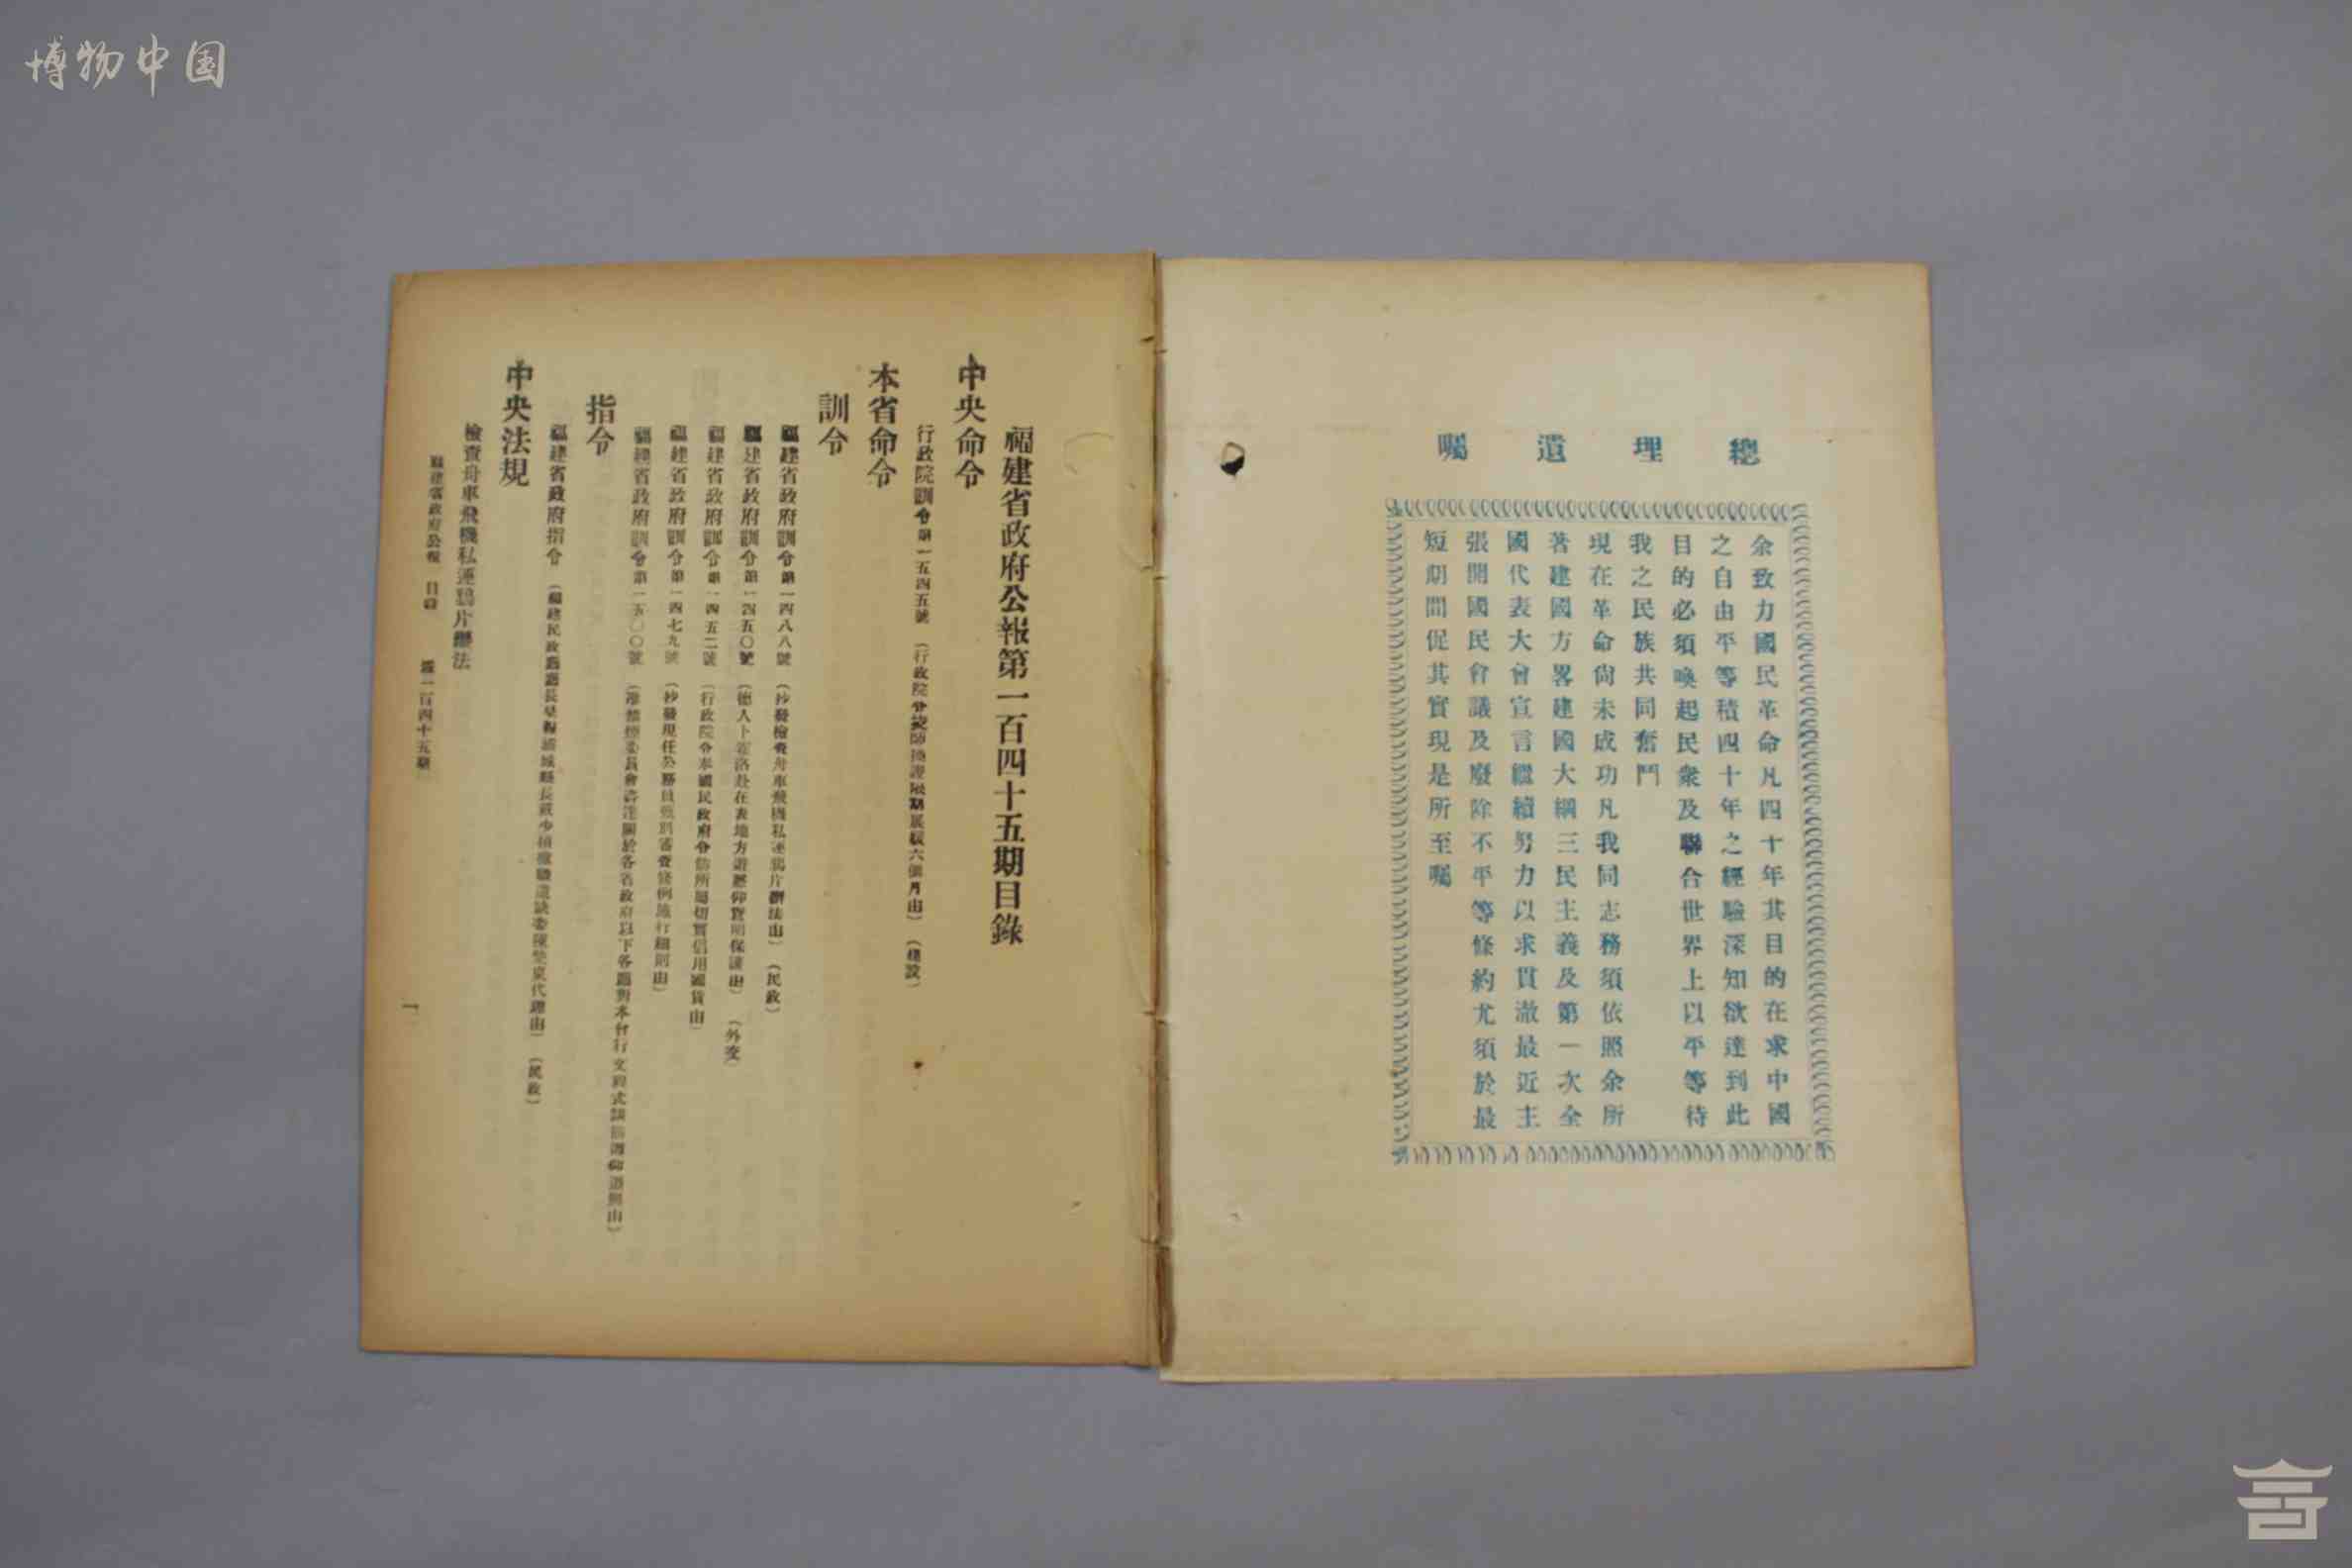 博物中国
總理遺囑
余致力國民革命凡四十年其目的在求中國
之自由平等積四十年之經驗深知欲達到此
目的必須喚起民衆及聯合世界上以平等待
我之民族共同奮鬥
現在革命尙未成功凡我同志務須依照余所
著建國方畧建國大綱三民主義及第一次全
國代表大會宣言繼續努力以求貫澈最近主
張開國民會議及廢除不平等條約尤須於最
短期間促其實現是所至囑
福建省政府公報第一百四十五期目錄
中央命令
行政院訓令第一五四五號 （行政院令 展 六個月由）（建設）
本省命令
訓令
福建省政府訓令第一四八八號 （抄發檢查舟車飛機私運鴉片辦法由）（民政）
福建省政府訓令第一四五〇號 （德人卜 洛赴在表地方遊歷仰 保護由）（外交）
福建省政府訓令第一四五二號 （行政院令奉國民政府令飭所屬切實信用國貨由）
福建省政府訓令第一四七九號 （抄發現任公務員甄別審查條例施行細則由）
福建省政府訓令第一五〇〇號 （准禁煙委員會咨 關於各省政府以下各 對本會行文程式 由）
指令
福建省政府指令 （福建民政廳廳長呈報 城縣長 代理由）（民政）
中央法規
檢查舟車飛機私運鴉片辦法
福建省政府公報 目錄 第一百四十五期 一